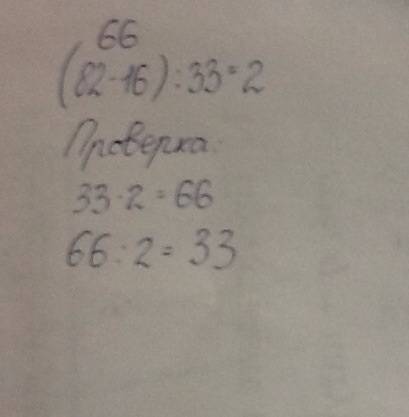 66
(82-16):33=2
Проверка.
33·2=66
66:2=33